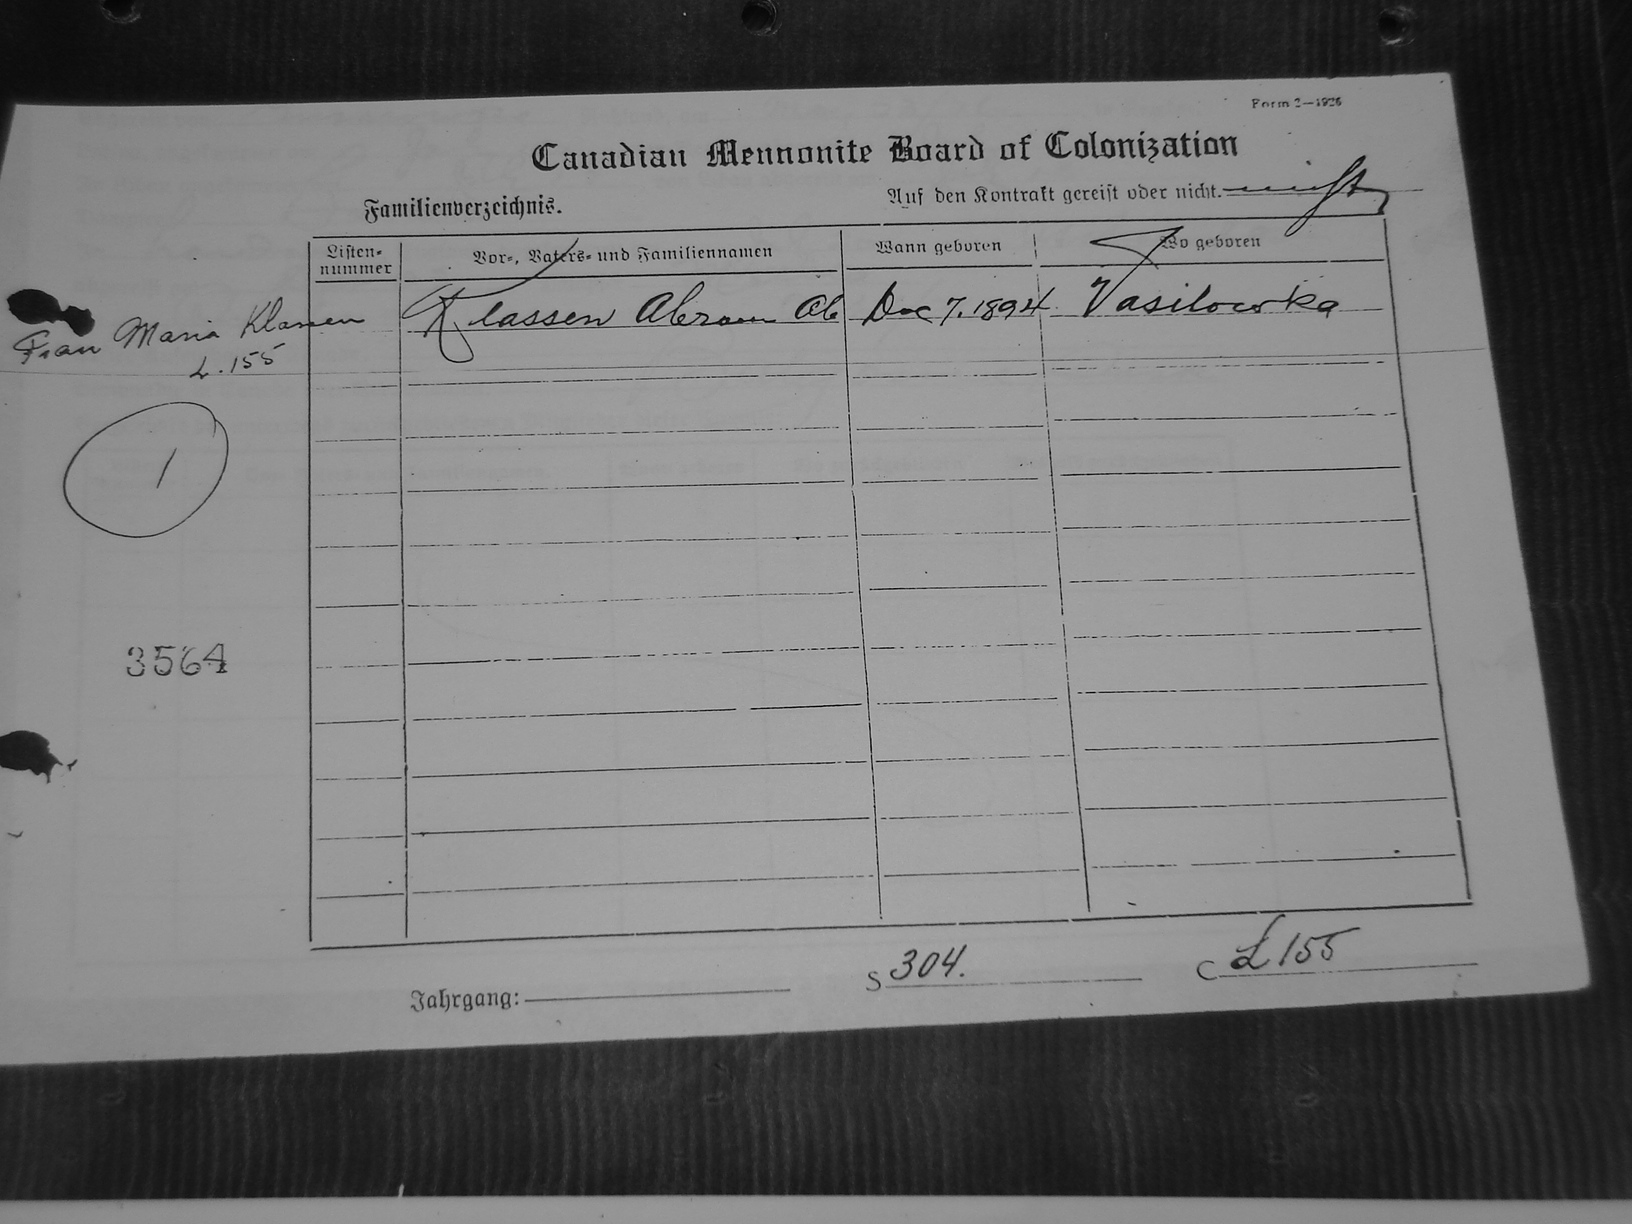 Form 2—1926
Canadian Mennonite Board of Colonization
Familienverzeichnis.
Auf den Kontrakt gereist oder nicht. nicht
Listen-nummer
Vor-, Vaters- und Familiennamen
Wann geboren
Wo geboren
Klassen Abram Ab
Dec 7. 1894
Vasilowka
Frau Maria Klassen
L. 155
1
3564
Jahrgang:
S 304.
C L 155